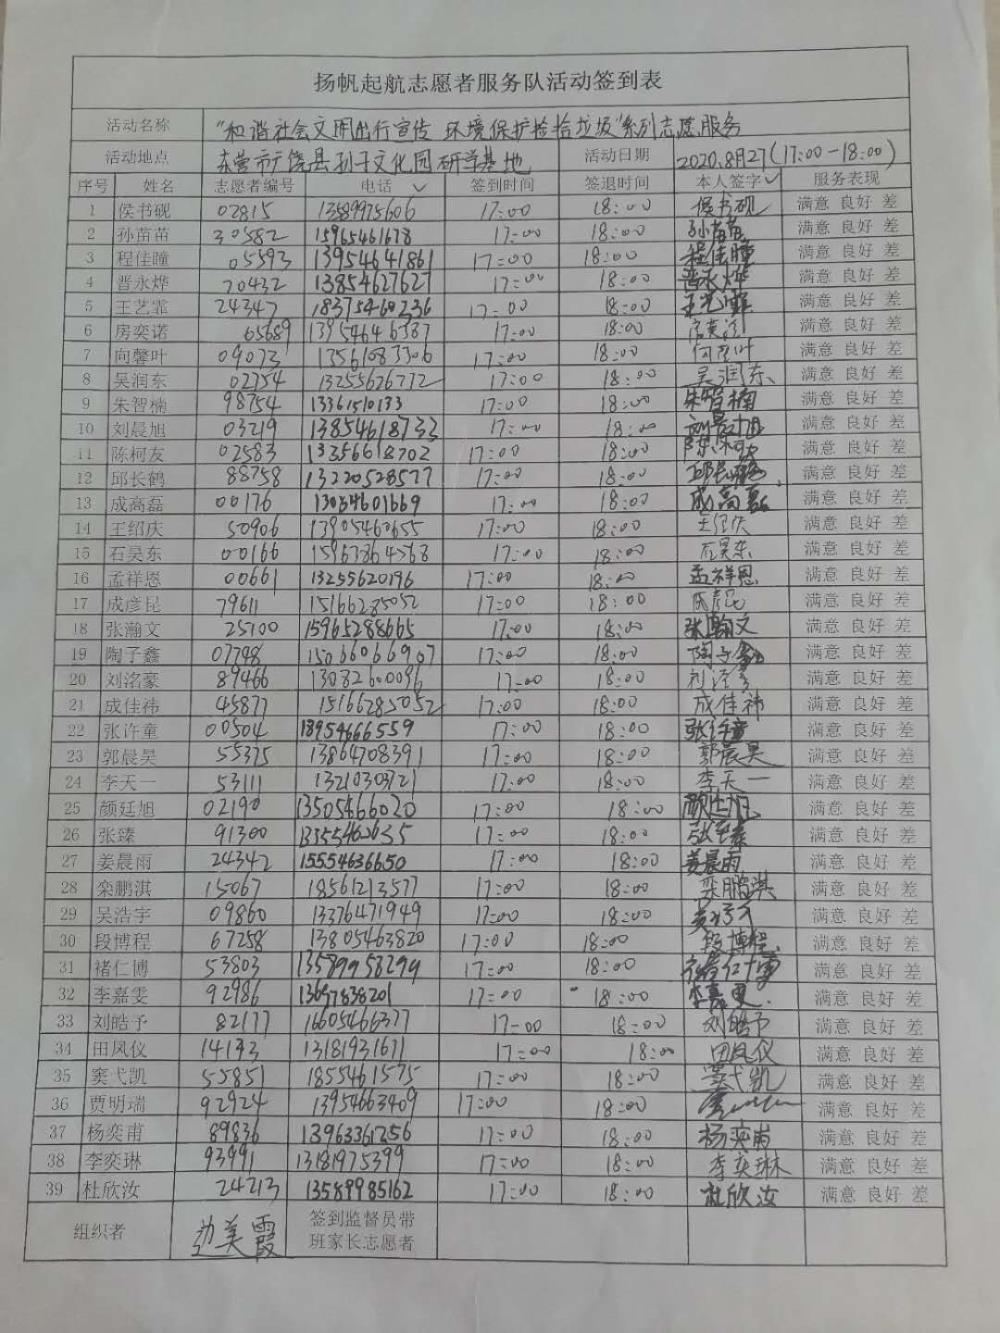 扬帆起航志愿者服务队活动签到表
活动名称 "和谐社会文明出行宣传 环境保护捡拾垃圾"系列志愿服务
活动地点 东营市广饶县孙子文化园研学基地 活动日期 2020.8月27(17:00-18:00)
序号 姓名 志愿者编号 电话 签到时间 签退时间 本人签字 服务表现
1 侯书砚 02815 13589975606 17:00 18:00 侯书砚 满意 良好 差
2 孙苗苗 30582 15965461678 17:00 18:00 孙苗苗 满意 良好 差
3 程佳瞳 05593 13954641861 17:00 18:00 程佳瞳 满意 良好 差
4 晋永烨 70432 13854627627 17:00 18:00 晋永烨 满意 良好 差
5 王艺霏 24347 18375460236 17:00 18:00 王艺霏 满意 良好 差
6 房奕诺 65689 13954646387 17:00 18:00 满意 良好 差
7 向馨叶 09073 13561083306 17:00 18:00 满意 良好 差
8 吴润东 02754 13255676772 17:00 18:00 吴润东 满意 良好 差
9 朱智楠 98754 13361510133 17:00 18:00 朱智楠 满意 良好 差
10 刘晨旭 03219 13854618733 17:00 18:00 刘晨旭 满意 良好 差
11 陈柯友 02583 13356618702 17:00 18:00 陈柯友 满意 良好 差
12 邱长鹤 88758 13220528577 17:00 18:00 邱长鹤 满意 良好 差
13 成高磊 00176 13054601669 17:00 18:00 成高磊 满意 良好 差
14 王绍庆 50906 13905460655 17:00 18:00 满意 良好 差
15 石昊东 00166 15963864768 17:00 18:00 石昊东 满意 良好 差
16 孟祥恩 00661 13255620196 17:00 18:00 孟祥恩 满意 良好 差
17 成彦昆 79611 15166285052 17:00 18:00 满意 良好 差
18 张瀚文 25100 15965288665 17:00 18:00 张瀚文 满意 良好 差
19 陶子鑫 07748 15066066967 17:00 18:00 陶子鑫 满意 良好 差
20 刘洺豪 89466 13082600096 17:00 18:00 满意 良好 差
21 成佳祎 45877 15166285052 17:00 18:00 成佳祎 满意 良好 差
22 张许童 00504 18954666559 17:00 18:00 张许童 满意 良好 差
23 郭晨昊 55375 13864708391 17:00 18:00 郭晨昊 满意 良好 差
24 李天一 53111 13210303721 17:00 18:00 李天一 满意 良好 差
25 颜廷旭 02190 13505466020 17:00 18:00 颜廷旭 满意 良好 差
26 张臻 91300 13355462635 17:00 18:00 张臻 满意 良好 差
27 姜晨雨 24342 15554636650 17:00 18:00 姜晨雨 满意 良好 差
28 栾鹏淇 15067 18561213577 17:00 18:00 栾鹏淇 满意 良好 差
29 吴浩宇 09860 13376471949 17:00 18:00 满意 良好 差
30 段博程 67258 13805463820 17:00 18:00 段博程 满意 良好 差
31 褚仁博 53803 13589958299 17:00 18:00 褚仁博 满意 良好 差
32 李嘉雯 92986 13647838201 17:00 18:00 李嘉雯 满意 良好 差
33 刘皓予 82177 16605466377 17:00 18:00 刘皓予 满意 良好 差
34 田凤仪 14143 13181931671 17:00 18:00 田凤仪 满意 良好 差
35 窦弋凯 55851 1855461575 17:00 18:00 窦弋凯 满意 良好 差
36 贾明瑞 92924 13954663409 17:00 18:00 满意 良好 差
37 杨奕甫 89836 13963361256 17:00 18:00 杨奕甫 满意 良好 差
38 李奕琳 93991 13181975399 17:00 18:00 李奕琳 满意 良好 差
39 杜欣汝 24213 13589985162 17:00 18:00 杜欣汝 满意 良好 差
组织者 美霞 签到监督员带
班家长志愿者